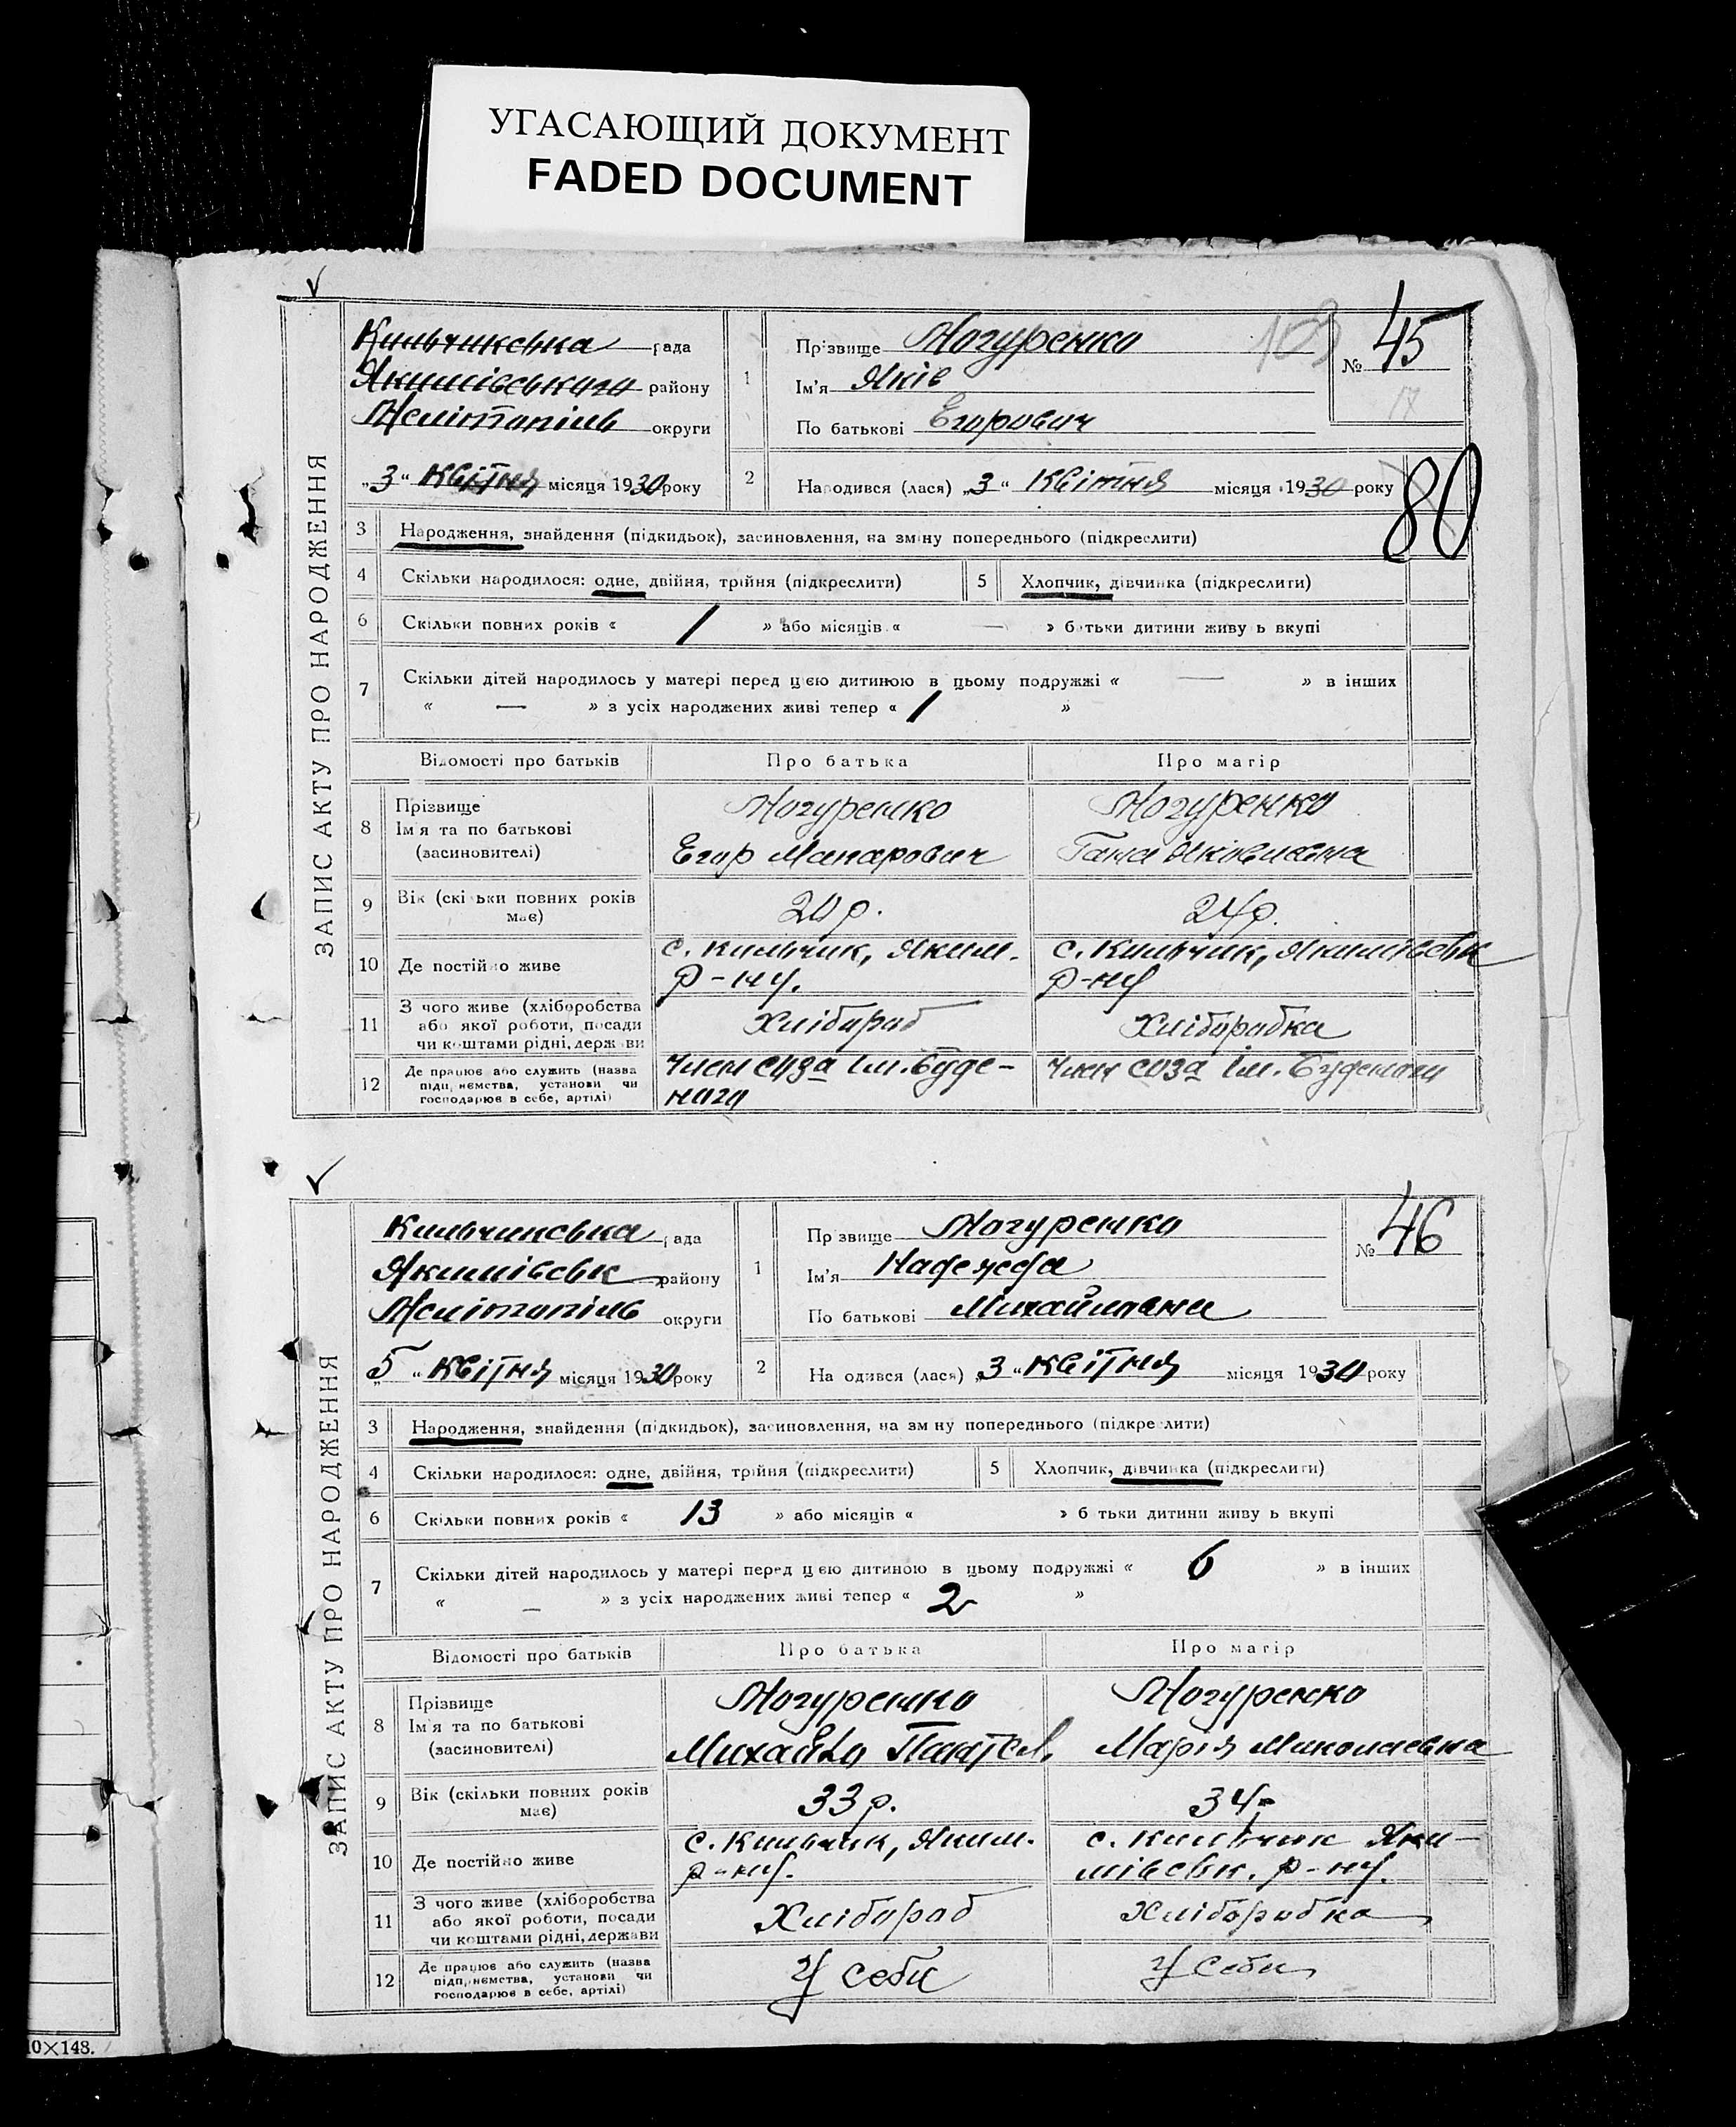 УГАСАЮЩИЙ ДОКУМЕНТ
FADED DOCUMENT
ЗАПИС АКТУ ПРО НАРОДЖЕННЯ
Кильчикська рада
Якимівського району
Мелітопіль округи
„3“ Квітня місяця 1930 року
1
Прізвище Могуренко
Ім'я Яків
По батькові Егорович
103
№ 45
17
80
2
Народився (лася) „3“ Квітня місяця 1930 року
3 Народження, знайдення (підкидьок), засиновлення, на зміну попереднього (підкреслити)
4 Скільки народилося: одне, двійня, трійня (підкреслити) 5 Хлопчик, дівчинка (підкреслити)
6 Скільки повних років « 1 » або місяців « — » батьки дитини живуть вкупі
7 Скільки дітей народилось у матері перед цією дитиною в цьому подружжі « — » в інших
« — » з усіх народжених живі тепер « 1 »
Відомості про батьків Про батька Про матір
8 Прізвище Могуренко Могуренко
Ім'я та по батькові
(засиновителі) Егор Макарович Гана Яковлевна
9 Вік (скільки повних років має) 20 р. 24 р.
10 Де постійно живе с. Кильчик, Яким. р-ну. с. Кильчик, Якимівськ р-ну
11 З чого живе (хліборобства
або якої роботи, посади
чи коштами рідні, держави Хлібороб Хліборобка
12 Де працює або служить (назва
підприємства, установи чи
господарює в себе, артілі) Член соза Ім. Буденого Член соза Ім. Буденого
ЗАПИС АКТУ ПРО НАРОДЖЕННЯ
Кильчикська рада
Якимівськ району
Мелітопіль округи
„5“ Квітня місяця 1930 року
1
Прізвище Могуренко
Ім'я Надежда
По батькові
№ 46
2
Народився (лася) „3“ Квітня місяця 1930 року
3 Народження, знайдення (підкидьок), засиновлення, на зміну попереднього (підкреслити)
4 Скільки народилося: одне, двійня, трійня (підкреслити) 5 Хлопчик, дівчинка (підкреслити)
6 Скільки повних років « 13 » або місяців « » батьки дитини живуть вкупі
7 Скільки дітей народилось у матері перед цією дитиною в цьому подружжі « 6 » в інших
« — » з усіх народжених живі тепер « 2 »
Відомості про батьків Про батька Про матір
8 Прізвище Могуренко Могуренко
Ім'я та по батькові
(засиновителі) Михайло Марія Миколаевна
9 Вік (скільки повних років має) 33 р. 34 р
10 Де постійно живе с. Кильчик, Яким. р-ну. с. Кильчик Якимівськ. р-ну.
11 З чого живе (хліборобства
або якої роботи, посади
чи коштами рідні, держави Хлібороб Хліборобка
12 Де працює або служить (назва
підприємства, установи чи
господарює в себе, артілі) У себе У себе
10×148.